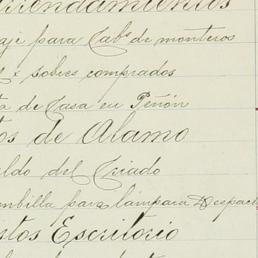 rrendamientos
aje para Cabs de monteros
l x sobres comprados
ta de Casa en Peñón
os de Alamo
ldo del Criado
mbilla para lámpara Despac
stos Escritorio